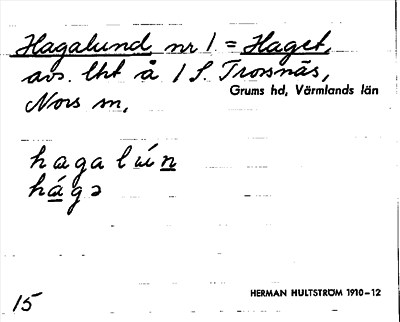 Hagalund nr 1 = Haget,
avs. lht å 1 S. Trossnäs,
Grums hd, Värmlands län
Nors sn,
hagalún
hágə
HERMAN HULTSTRÖM 1910-12
15